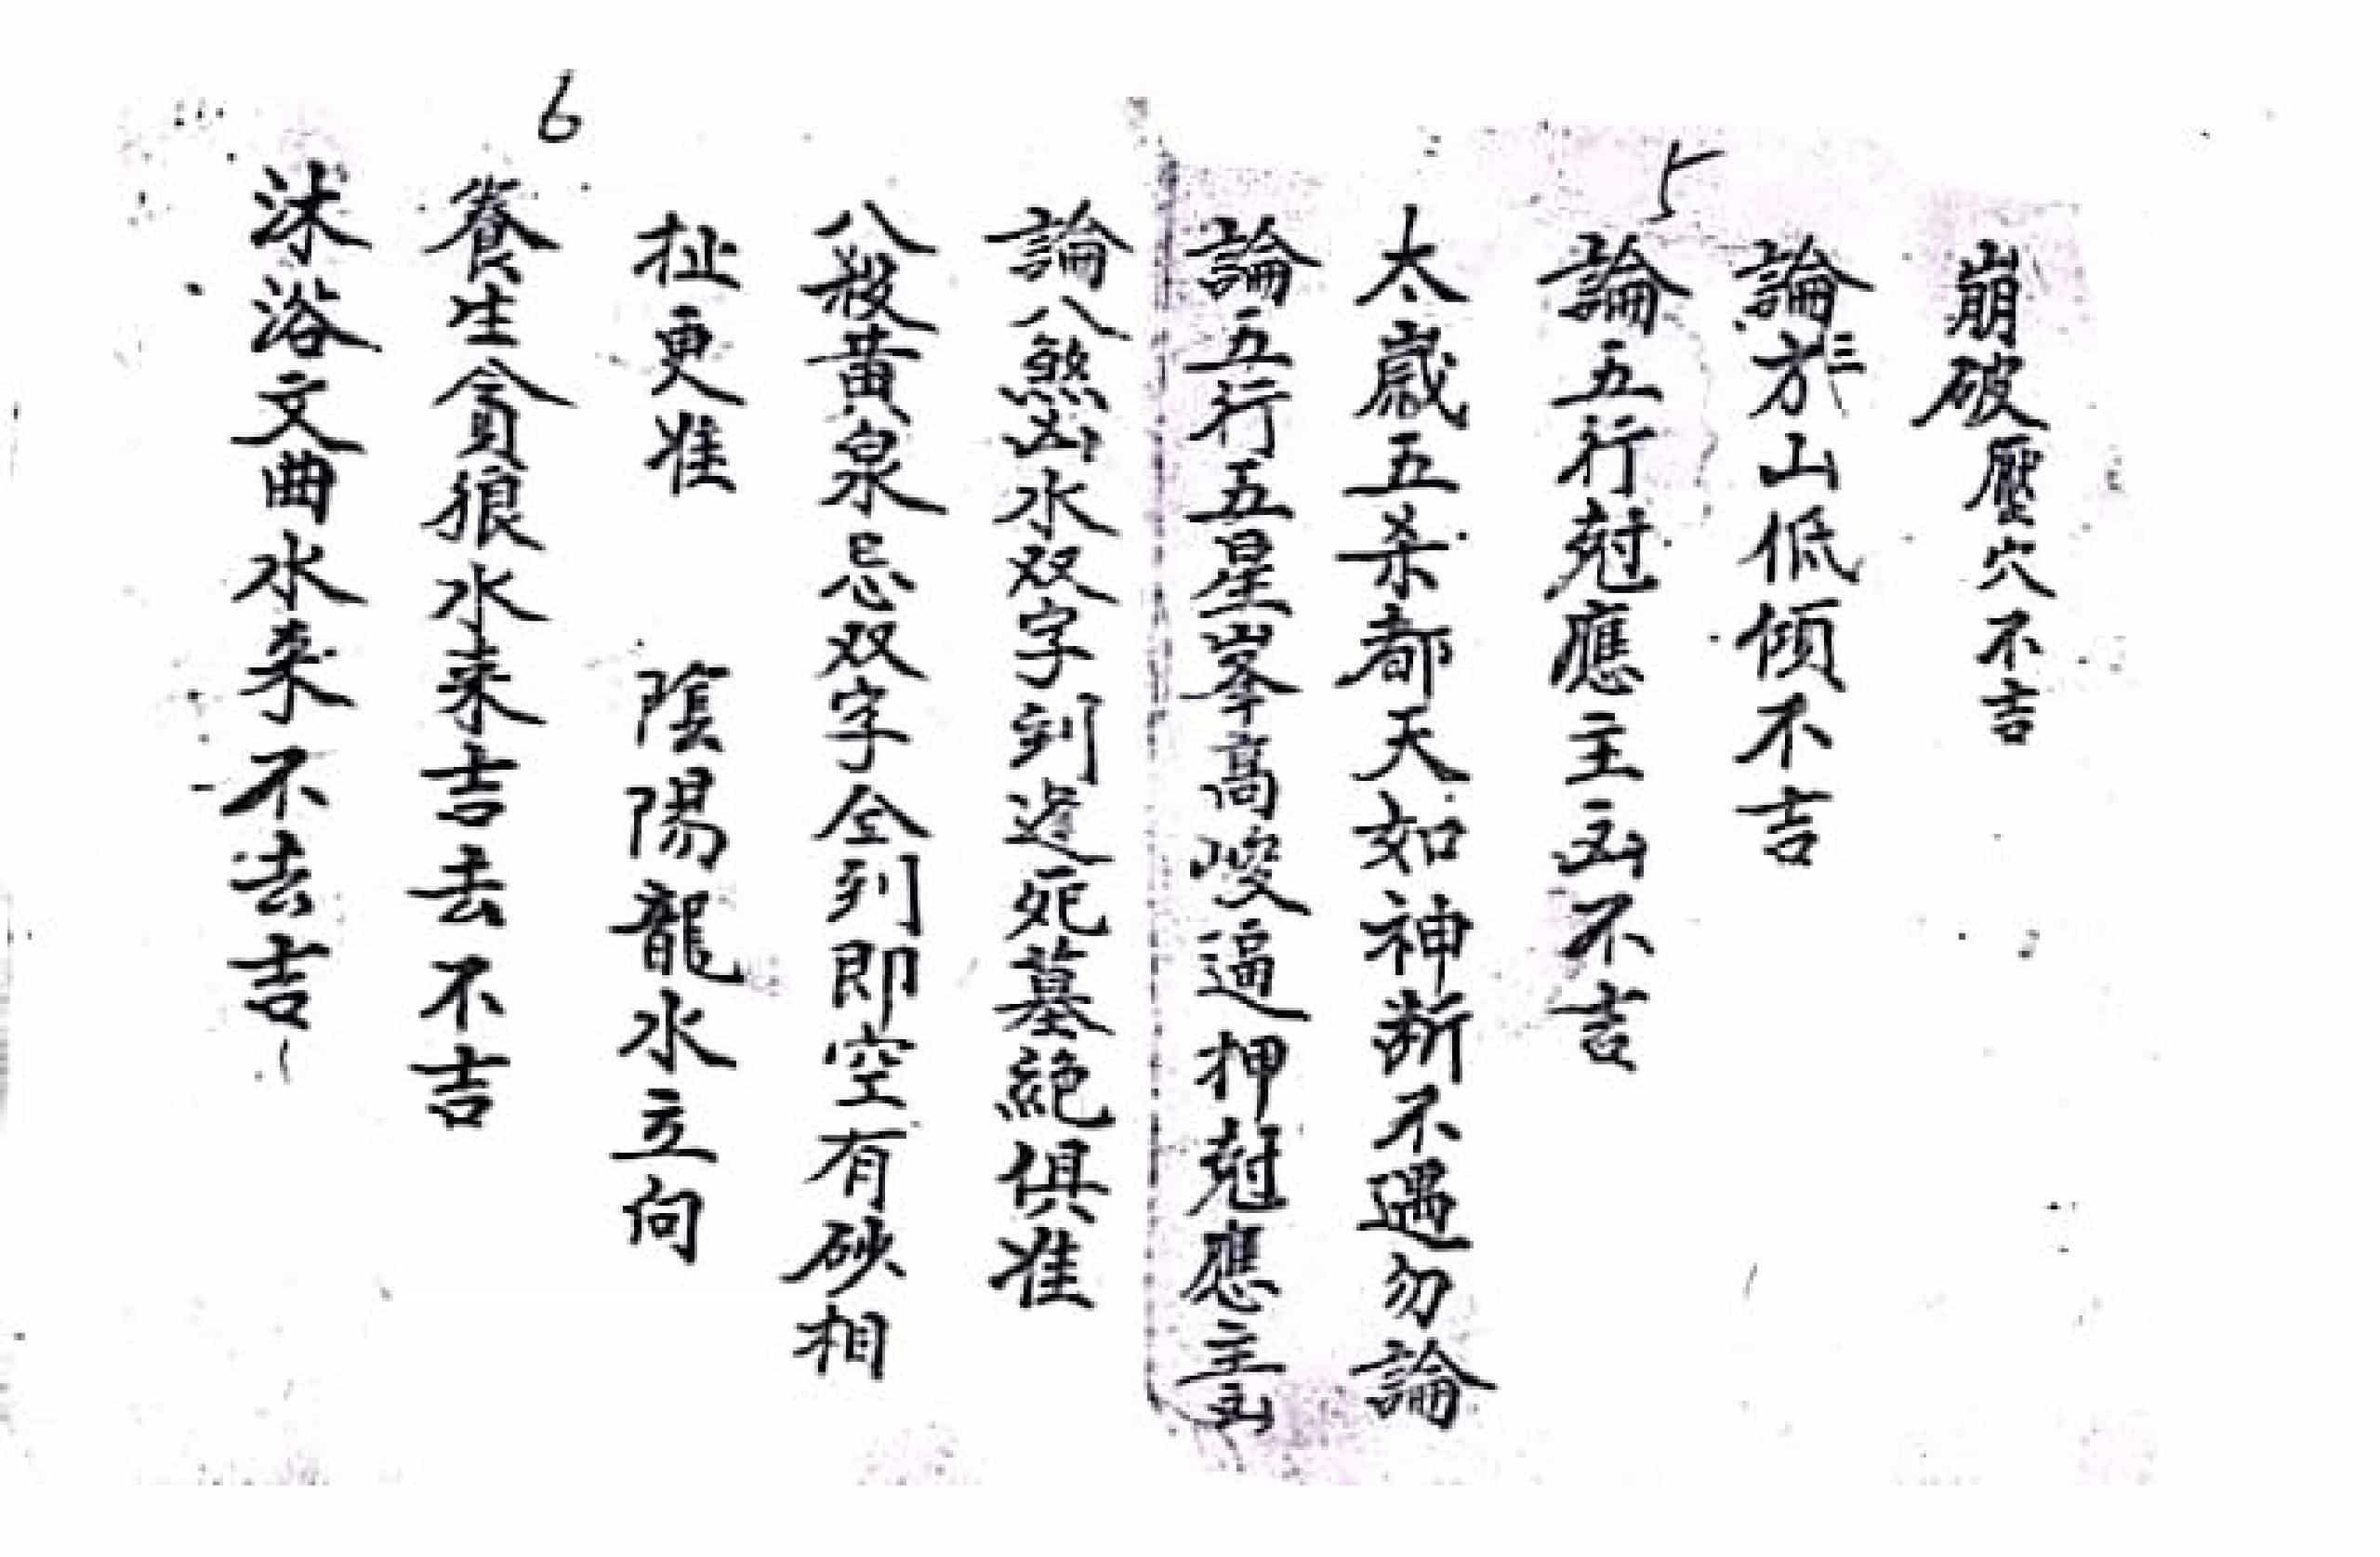 5
崩破壓穴不吉
論三方山低傾不吉
論五行尅應主凶不吉
太歲五杀都天如神断不遇勿論
論五行五星峯高峻逼押尅應主凶
論八煞凶水双字到逢死墓絕俱准
八殺黄泉忌双字全到即空有砂相
扯更准 陰陽龍水立向
6
養生貪狼水来吉去不吉
沐浴文曲水来不去吉